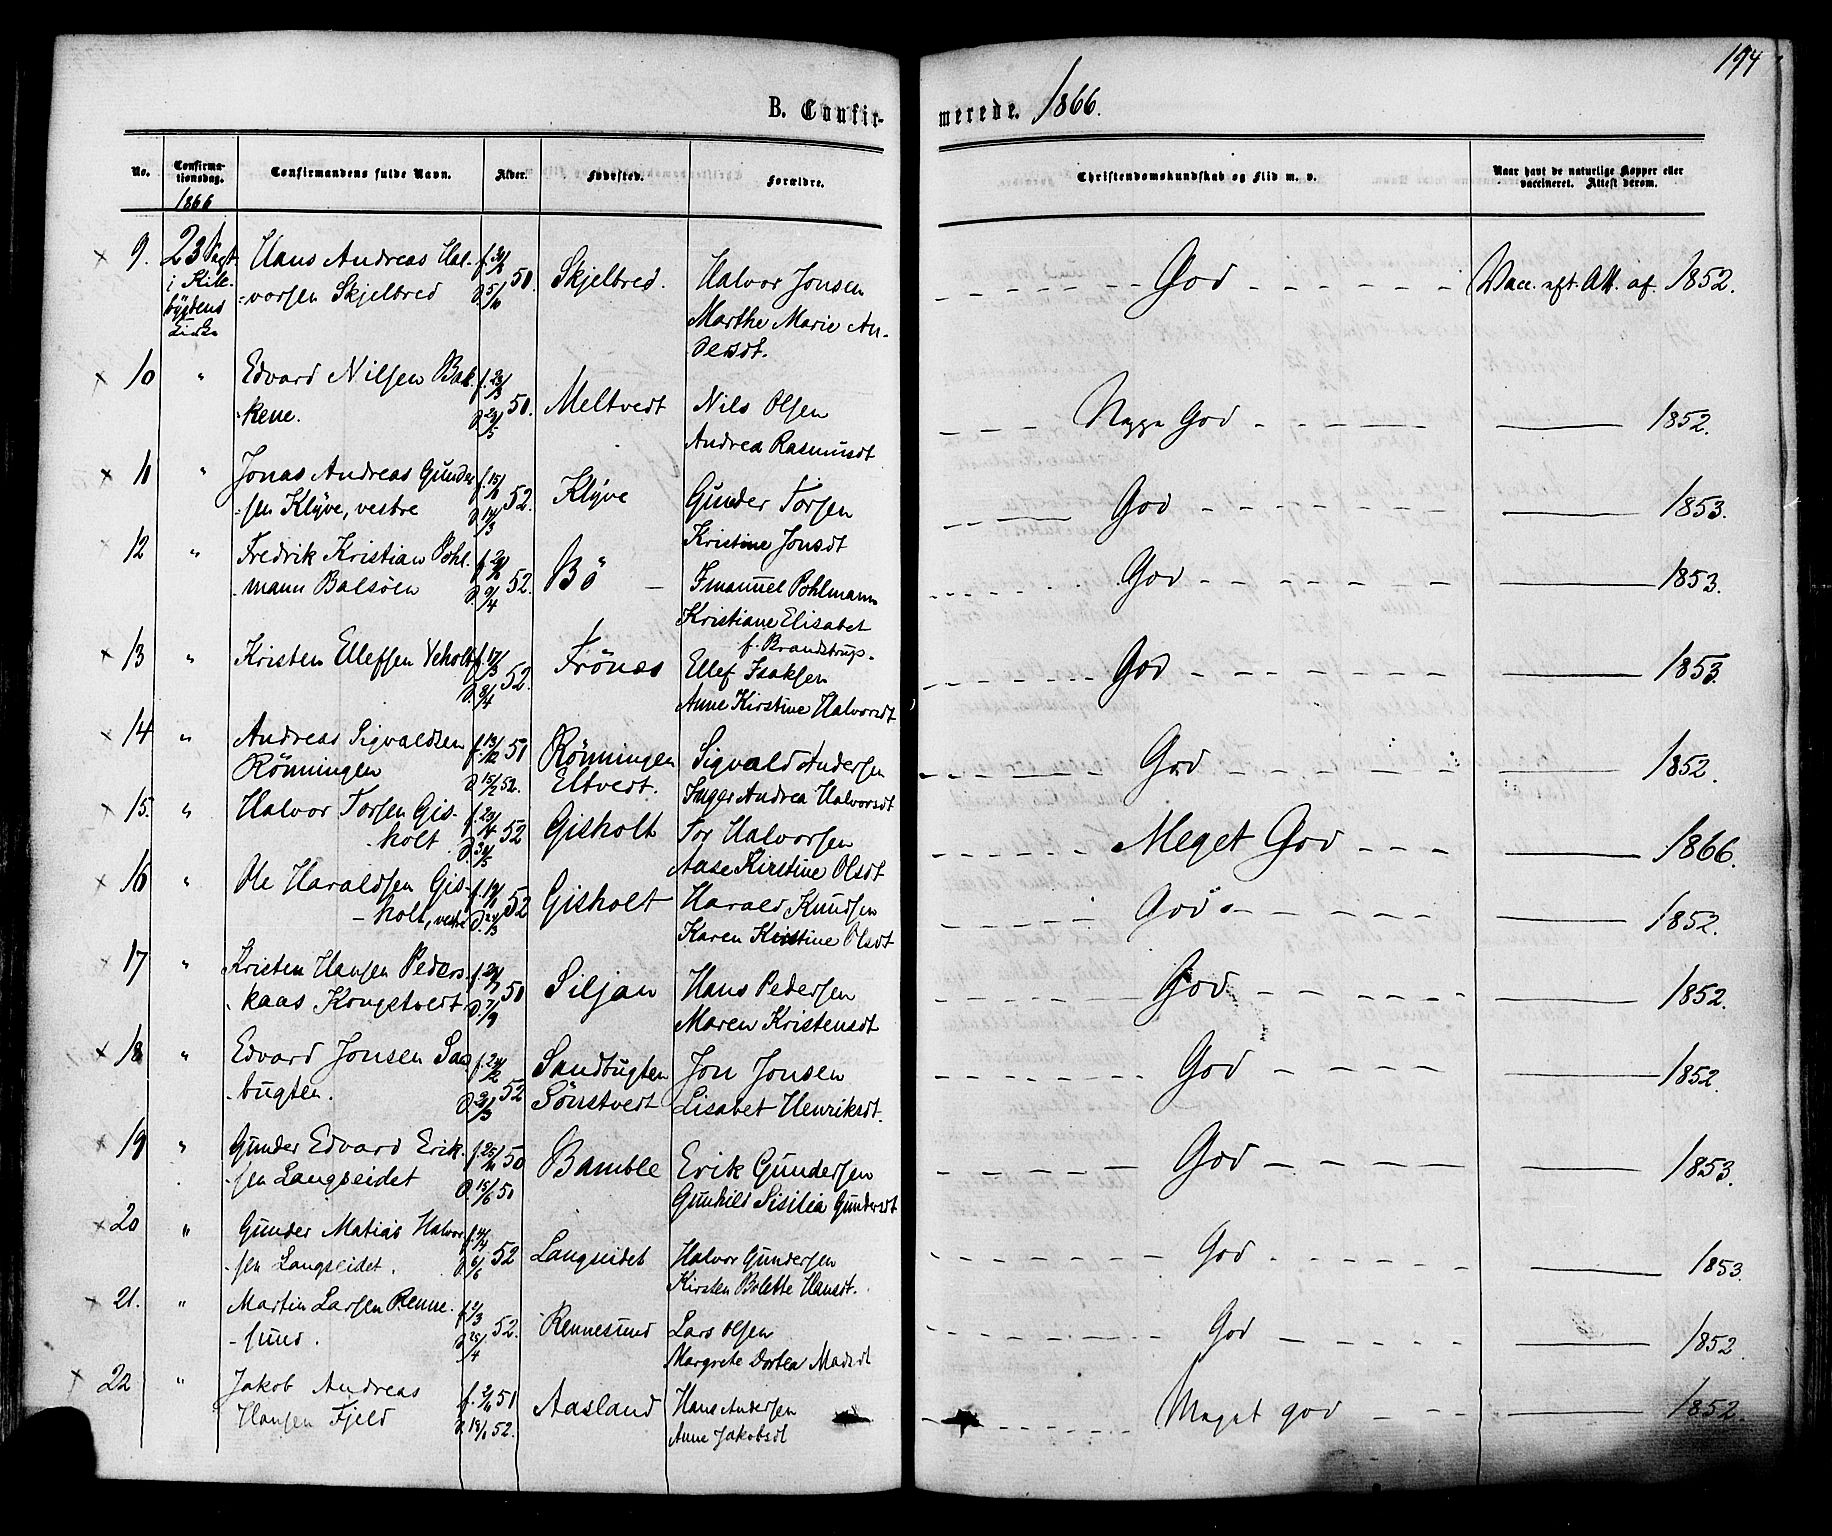 194
B. Confirmerede. 1866.
No. Confirmationsdag. Confirmandens fulde Navn. Alder. Fødested. Forældre. Christendomskundskab og Flid m. v. Naar havt de naturlige Kopper eller vaccineret. Attest derom.
1866
× 9. 23 Sept i Kile-bygdens Hans Andreas Hal-vorsen Skjelbred 50. Skjelbred. Halvor Jonsen
Marthe Marie An-dersdt. God Vacc. aft. Att. af. 1852.
× 10 " Edvard Nilsen Bak-kene. f. 23/3 50. Meltvedt Nils Olsen
Andrea Rasmusdt Negge God 1852.
× 11 " Jonas Andreas Gunder-sen Klyve, vestre 52. Klyve Gunder Torsen
Kristine Jonsdt God 1853.
12 " Fredrik Kristian Pohl-mann Balsöen d. 9/4 52. Bö Emanuel Pohlmann
Kristiane Elisabet
f. Brandstrup. God 1853.
× 13 " Kristen Ellefsen Veholt f. 17/3 d. 8/4 52. Trönæs Ellef Isaksen
Anne Kirstine Halvorsdt God 1853.
× 14 " Andreas Sigvaldsen
Rönningen f. 13/12 51 d. 15/2 52. Rönningen
Eltvedt. Sigvald Andersen
Inger Andrea Halvorsdt God 1852.
× 15. " Halvor Torsen Gis-holt f. 23/4 d. 31/5 52 Gisholt Tor Halvorsen
Aase Kirstine Olsdt Meget God 1866.
× 16 " Ole Haraldsen Gis-holt, vestre 52 Gisholt Harald Knudsen
Karen Kirstine Olsdt God 1852.
× 17 " Kristen Hansen Peders-kaas Kongetvedt d. 7/9 50 Siljan Hans Pedersen
Maren Kristensdt God 1852.
× 18 " Edvard Jonsen San-bugten. 52 Sandbugten
Sönstvedt Jon Jonsen
Lisabet Henriksdt. God 1852.
× 19 " Gunder Edvard Erik-sen Langseidet 50 d. 15/6 51 Bamble Erik Gundersen
Gunhild Sisilia Gundersdt God 1853.
× 20 " Gunder Matias Halvor-sen Langseidet. d. 6/6 52 Langseidet Halvor Gundersen
Kirsten Bolette Hansdt. God 1853.
× 21. " Martin Larsen Renne-sund. f. 2/3 d. 25/4 52. Rennesund Lars Olsen
Margrete Dortea Madsdt God 1852.
× 22 " Jakob Andreas
Hansen Fjeld 51 52. Aasland Hans Andersen
Anne Jakobsdt Meget god 1852.